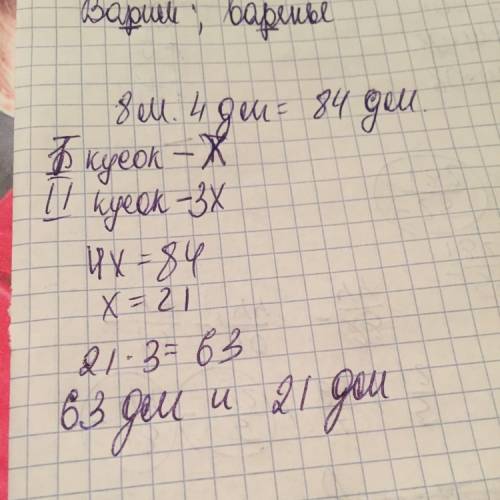 Варим; варенье
8 м. 4 дм = 84 дм.
I кусок - X
II кусок - 3X
4X = 84
X = 21
21 · 3 = 63
63 дм и 21 дм